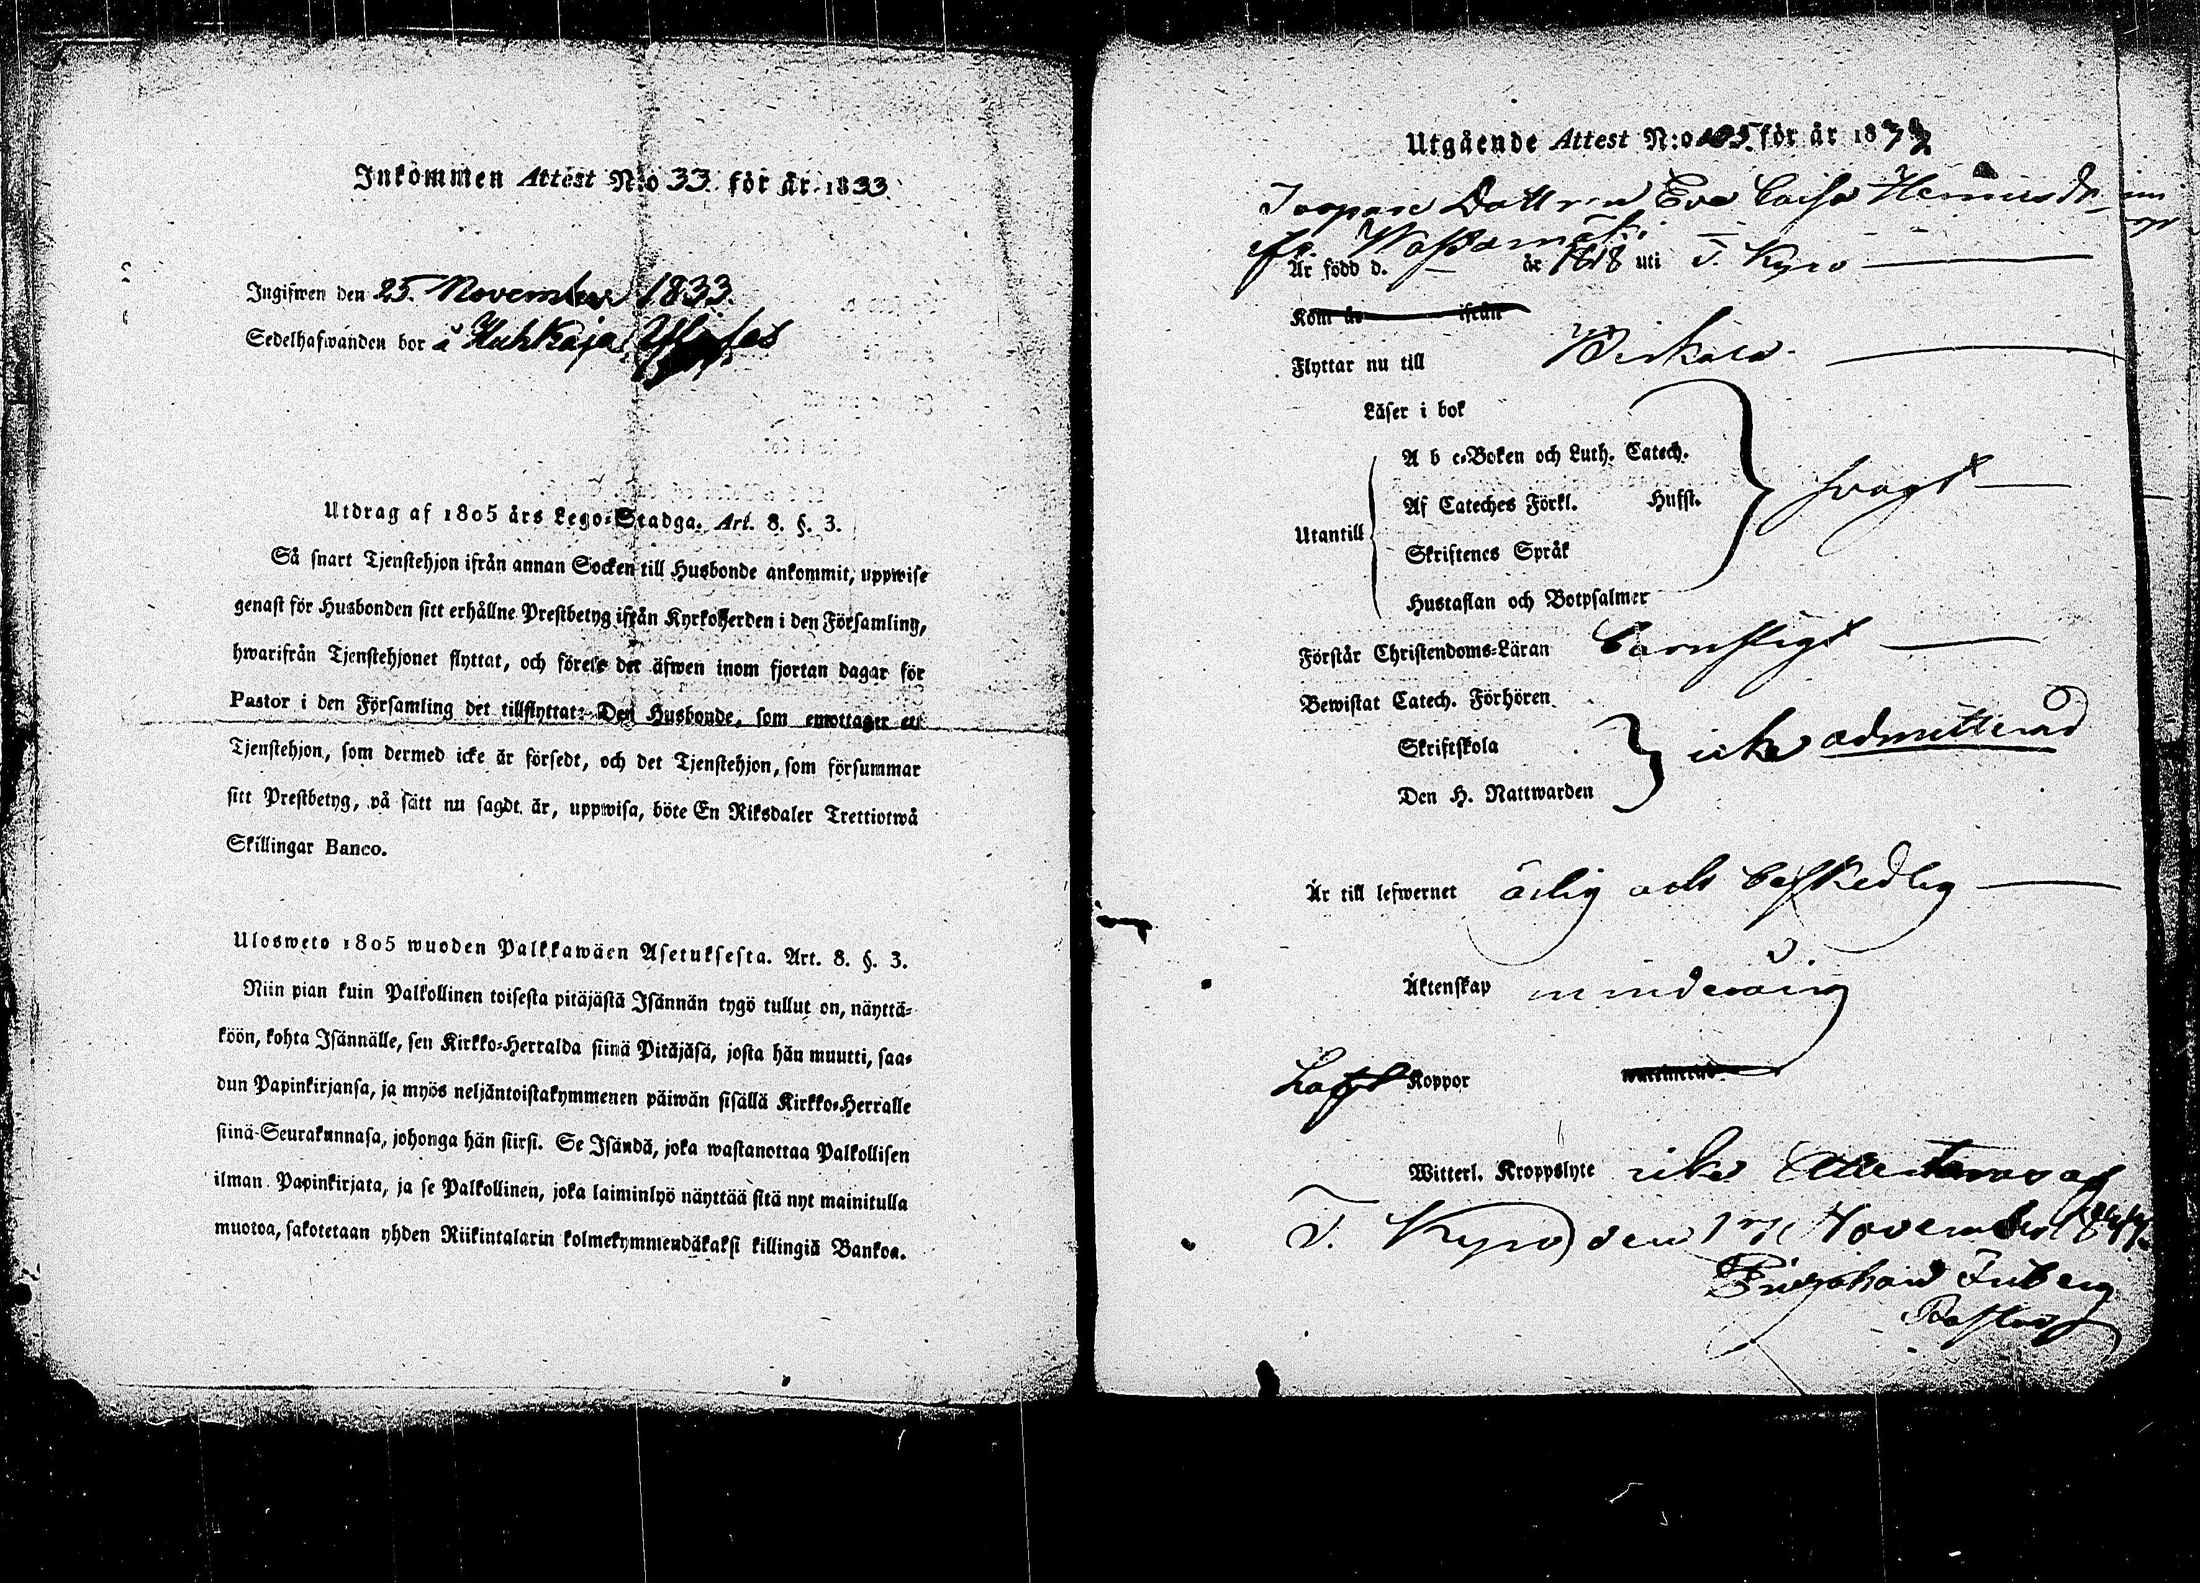 Inkommen Attest N:o 33. för år 1833.
Ingifwen den 25. November 1833.
Sedelhafwanden bor i Kuhkaja
Utdrag af 1805 års Lego-Stadga. Art. 8. §. 3.
Så snart Tjenstehjon ifrån annan Socken till Husbonde ankommit, uppwise
genast för Husbonden sitt erhållne Prestbetyg ifrån Kyrkoherden i den Församling,
hwarifrån Tjenstehjonet flyttat, och förete det äfwen inom fjortan dagar för
Pastor i den Församling det tillflyttat. Den Husbonde, som emottager ett
Tjenstehjon, som dermed icke är försedt, och det Tjenstehjon, som försummar
sitt Prestbetyg, på sätt nu sagdt är, uppwisa, böte En Riksdaler Trettiotwå
Skillingar Banco.
Ulosweto 1805 wuoden Palkkawäen Asetuksesta. Art. 8. §. 3.
Niin pian kuin Palkollinen toisesta pitäjästä Isännän tygö tullut on, näyttä-
köön, kohta Isännälle, sen Kirkko-Herralda siinä Pitäjäsä, josta hän muutti, saa-
dun Papinkirjansa, ja myös neljäntoistakymmenen päiwän sisällä Kirkko-Herralle
siinä Seurakunnasa, johonga hän siirsi. Se Isändä, joka wastanottaa Palkollisen
ilman Papinkirjata, ja se Palkollinen, joka laiminlyö näyttää sitä nyt mainitulla
muotoa, sakotetaan yhden Riikintalarin kolmekymmendäkaksi killingiä Bankoa.
Utgående Attest N:o 105. för år 18
Dottren Eva Caisa Henricsdr
ifr.
Är född d. — år 1818 uti T. Kyro
Kom år ifrån
Flyttar nu till Birkala.
Läser i bok
A b c-Boken och Luth. Catech.
Af Cateches Förkl. Husst.
svagt
Utantill
Skriftenes Språk
Hustaflan och Botpsalmer
Förstår Christendoms-Läran barnsligt
Bewistat Catech. Förhören
Skriftskola
icke admitterad
Den H. Nattwarden
Är till lefwernet ärlig och beskedlig
Äktenskap minderårig
haft Koppor
Witterl. Kroppslyte icke Attesteras af
T. Kyro den November
Pastor